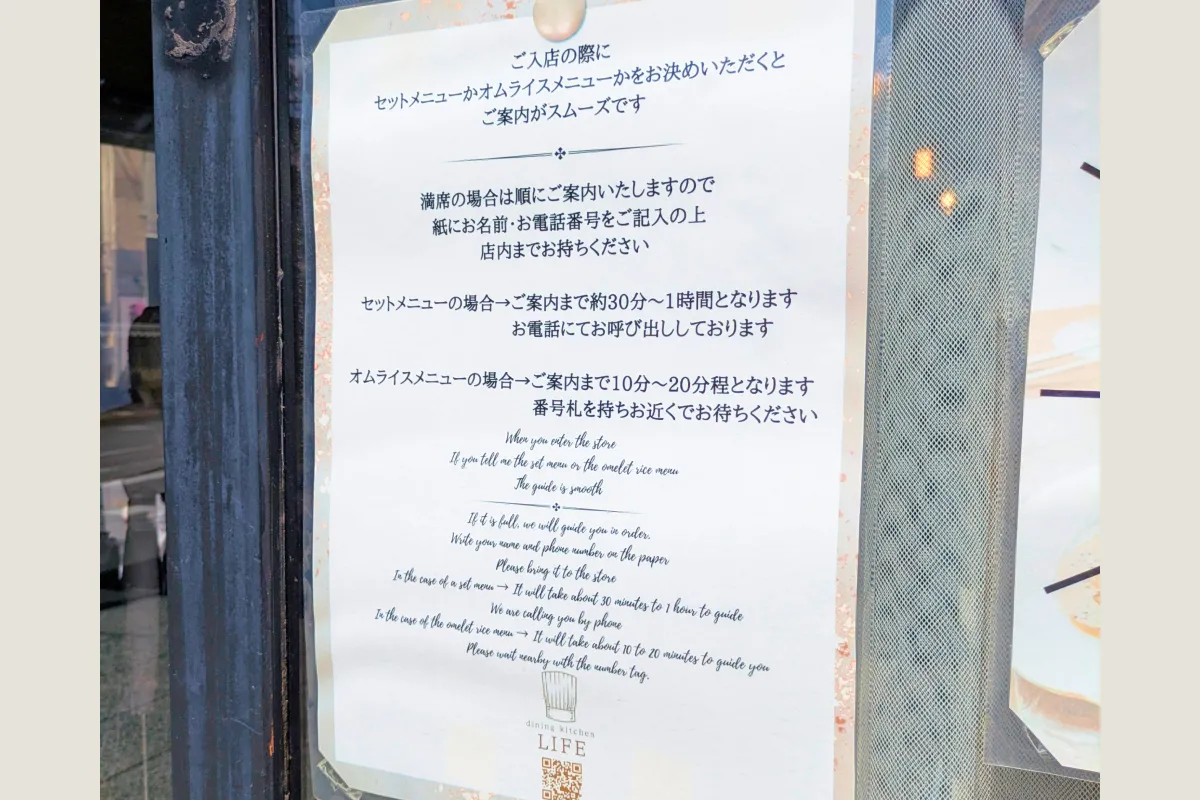 ご入店の際に
セットメニューかオムライスメニューかをお決めいただくと
ご案内がスムーズです
満席の場合は順にご案内いたしますので
紙にお名前・お電話番号をご記入の上
店内までお持ちください
セットメニューの場合→ご案内まで約30分〜1時間となります
お電話にてお呼び出ししております
オムライスメニューの場合→ご案内まで10分〜20分程となります
番号札を持ちお近くでお待ちください
When you enter the store
If you tell me the set menu or the omelet rice menu
The guide is smooth
If it is full, we will guide you in order.
Write your name and phone number on the paper
Please bring it to the store
In the case of a set menu → It will take about 30 minutes to 1 hour to guide
We are calling you by phone
In the case of the omelet rice menu → It will take about 10 to 20 minutes to guide you
Please wait nearby with the number tag.
dining kitchen
LIFE